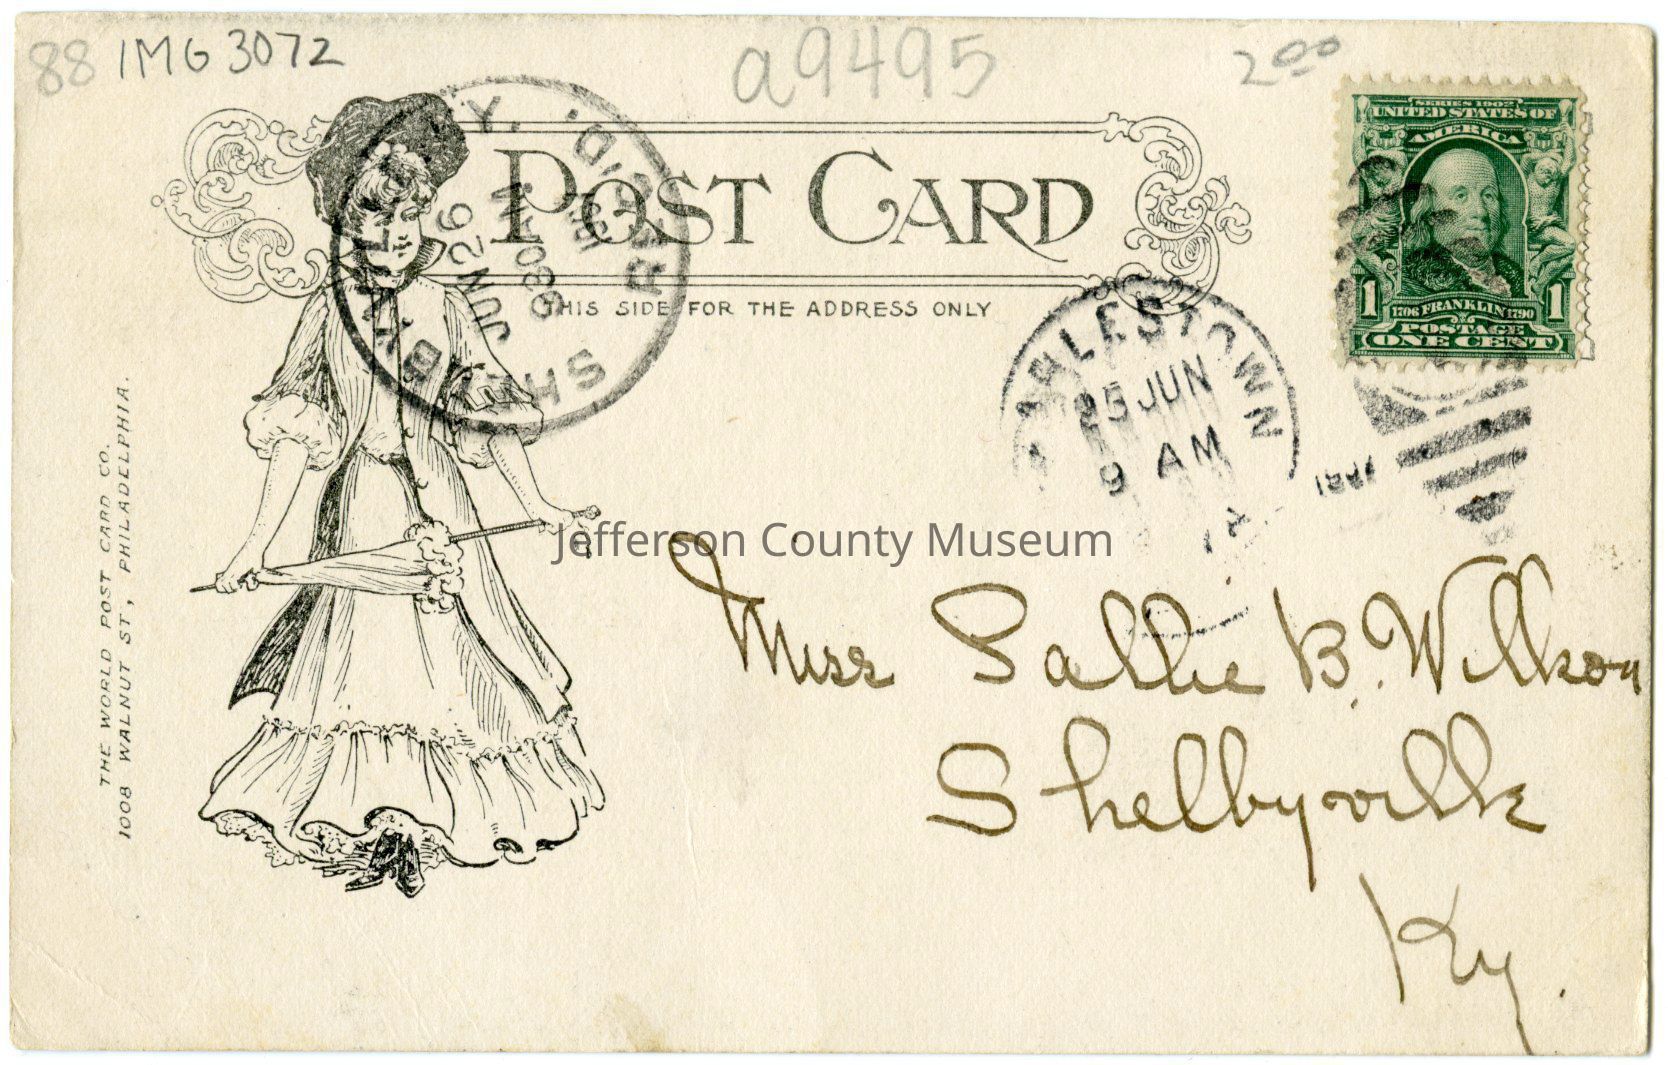 88 IMG 3072
a9495
2.00
POST CARD
THIS SIDE FOR THE ADDRESS ONLY
SERIES 1902
UNITED STATES OF
AMERICA
1 1706 FRANKLIN 1790 1
POSTAGE
ONE CENT
SHELBYVILLE, KY.
REC'D.
JUN 26
630 AM
CHARLESTOWN
25 JUN
9 AM
THE WORLD POST CARD CO.
1008 WALNUT ST, PHILADELPHIA.
Jefferson County Museum
Miss Sallie B. Willson
Shelbyville
Ky.